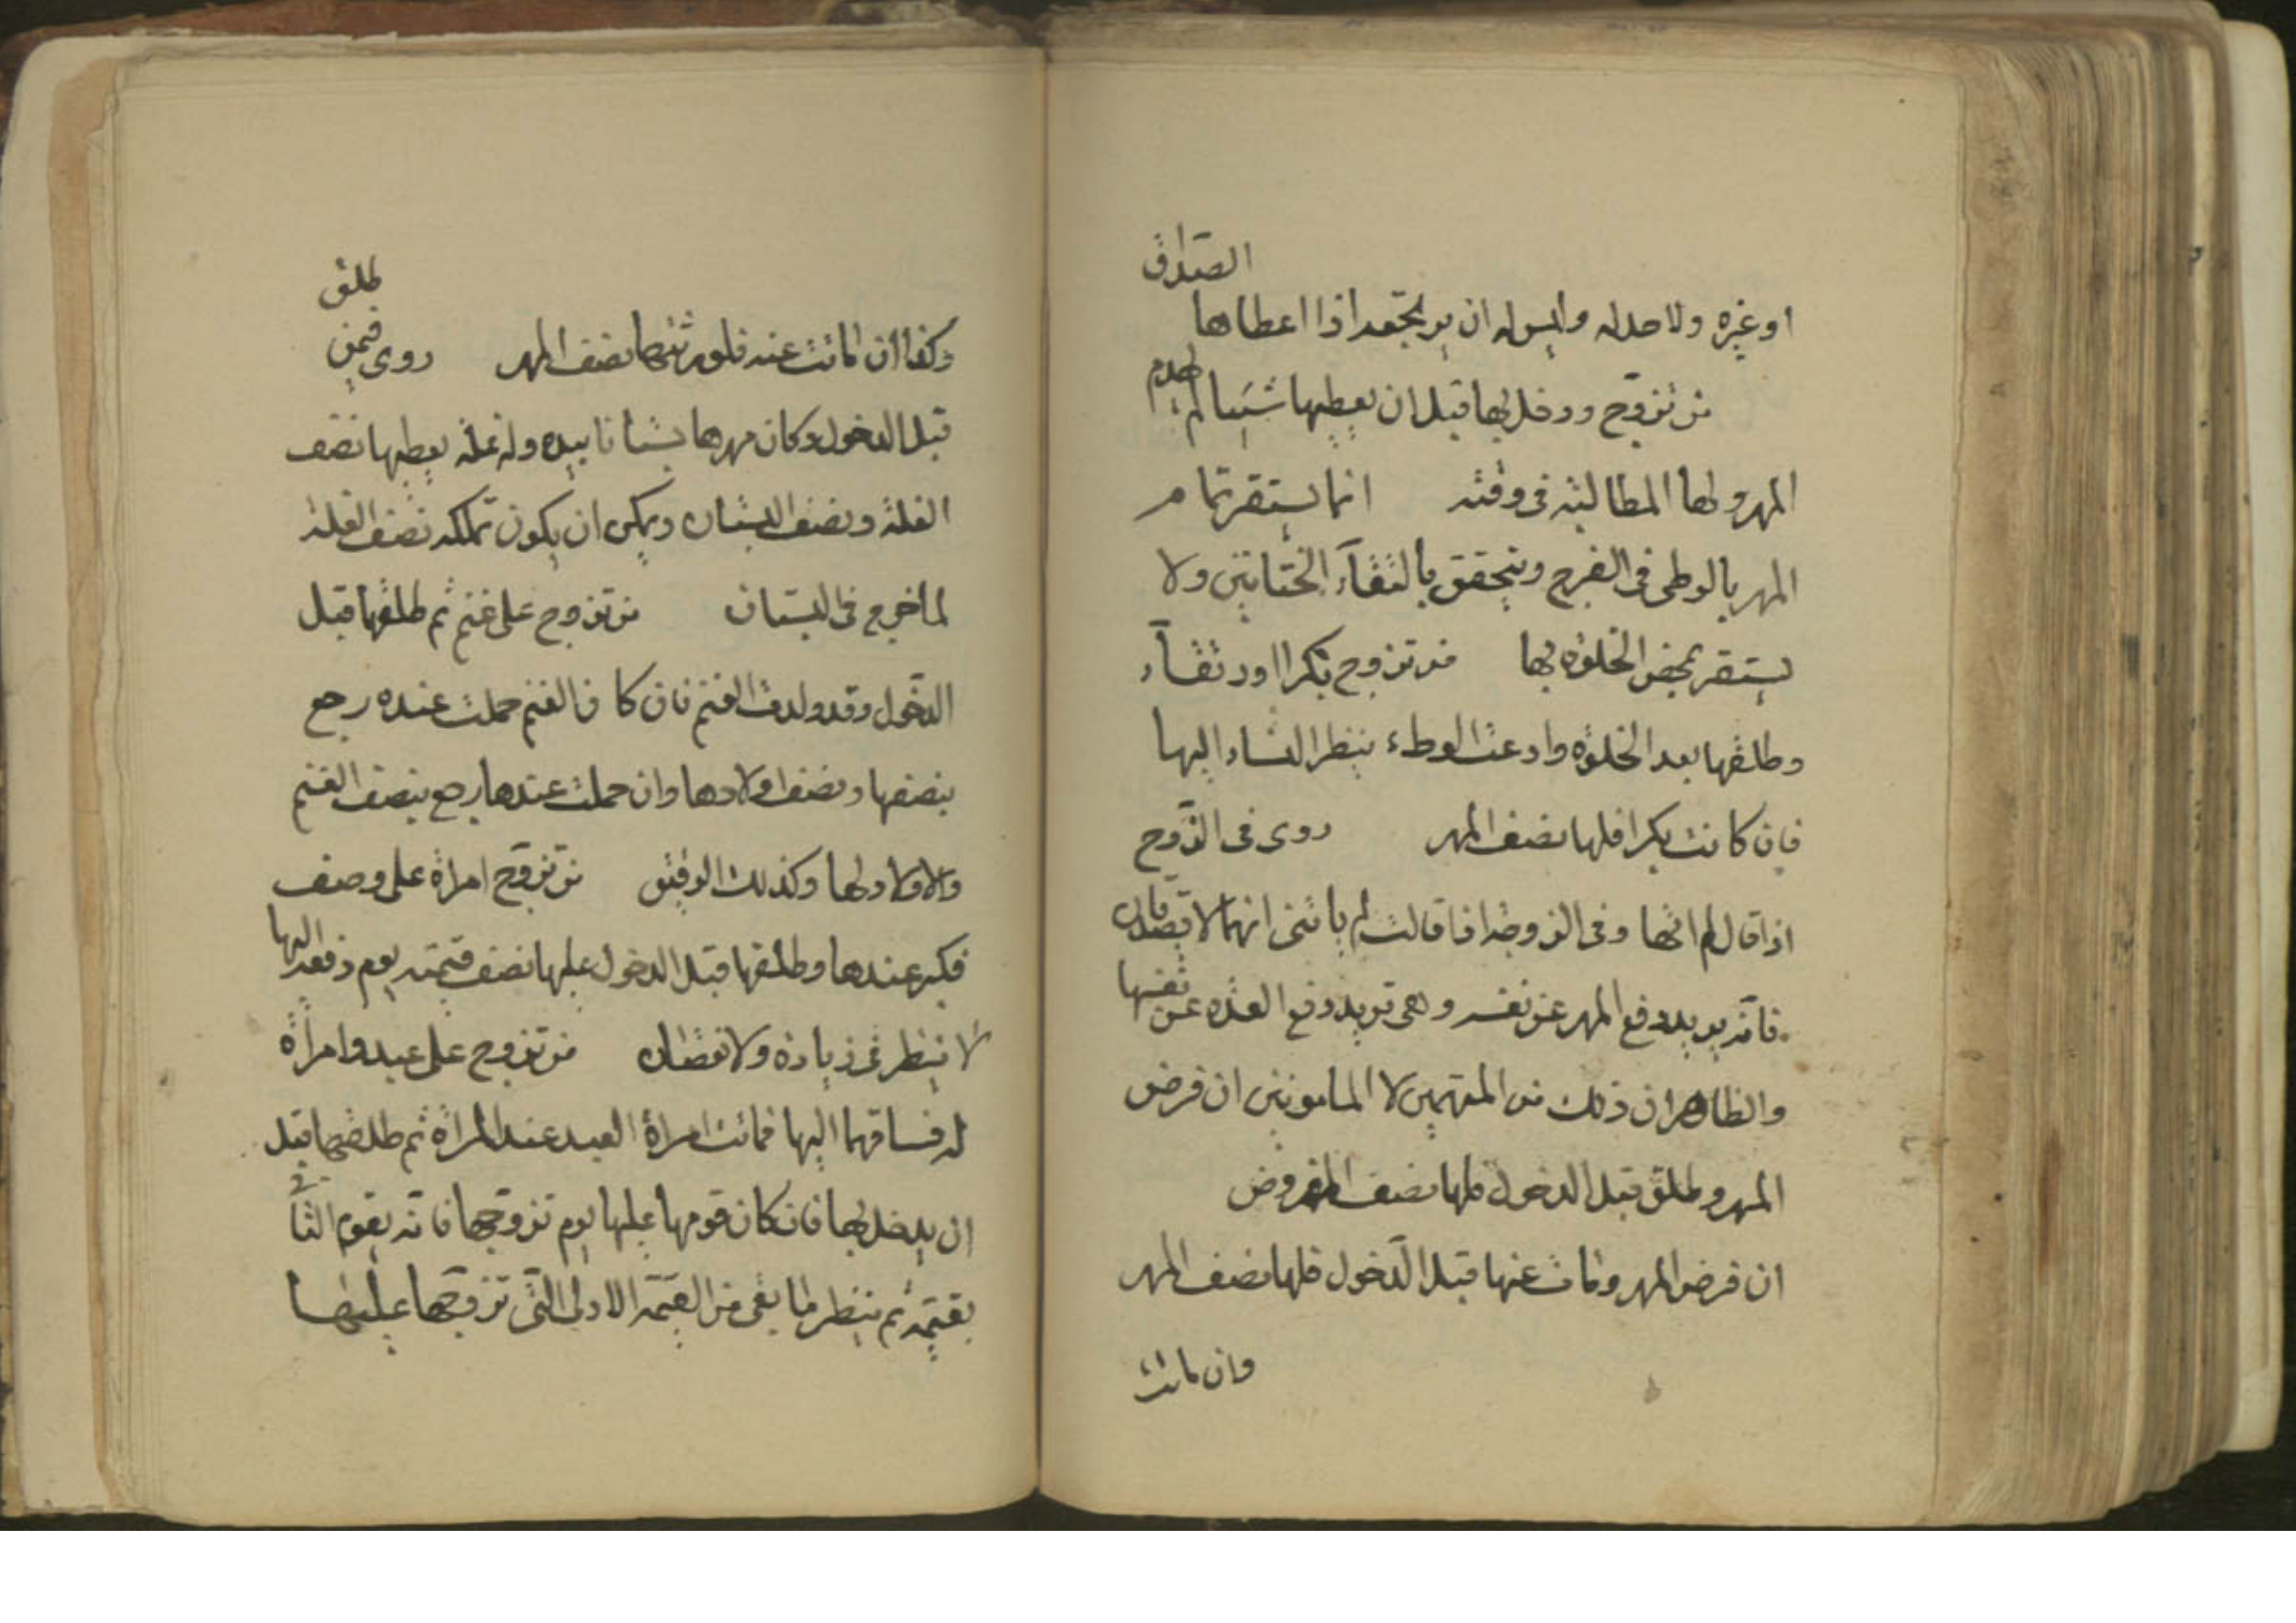 او غيره ولا حد له وليس له ان يرتجعه اذا اعطاها الصداق
من تزوج ودخل بها قبل ان يعطيها شيئا لم يهدم
المهر ولها المطالبة فى وقته انما يستقر تمام
المهر بالوطى فى الفرج ويتحقق بالتقاء الختانين ولا
يستقر بمحض الخلوة بها من تزوج بكرا او رتقاء
وطلقها بعد الخلوة وادعت الوطء ينظر النساء اليها
فان كانت بكرا فلها نصف المهر روى فى الزوج
اذا قال لم اتها وفى الزوجة اذا قالت لم ياتنى انهما لا يصدقان
فانه يريد دفع المهر عن نفسه وهى تريد دفع العدة عن نفسها
والظاهر ان ذلك من المتهمين لا المامونين ان فرض
المهر وطلق قبل الدخول فلها نصف المفروض
ان فرض المهر ومات عنها قبل الدخول فلها نصف المهر
وان ماتت
وكذا ان ماتت عنه فلورثتها نصف المهر روى فيمن طلق
قبل الدخول وكان مهرها بستانا بيده وله غلة يعطيها نصف
الغلة ونصف البستان ويمكن ان يكون تملكه نصف الغلة
لما خرج فى البستان من تزوج على غنم ثم طلقها قبل
الدخول وقد ولدت الغنم فان كان الغنم حملت عنده رجع
بنصفها ونصف اولادها وان حملت عندها رجع بنصف الغنم
والاولاد لها وكذلك الرقيق من تزوج امراة على وصيف
فكبر عندها وطلقها قبل الدخول عليها نصف قيمته يوم دفعه اليها
لا ينظر فى زيادة ولا نقصان من تزوج على عبد وامراة
له فساقهما اليها فماتت امراة العبد عند المراة ثم طلقها قبل
ان يدخل بها فان كان قومها عليها يوم تزوجها فانه يقوم الثانى
بقيمة ثم ينظر ما بقى من القيمة الاولى التى تزوجها عليها